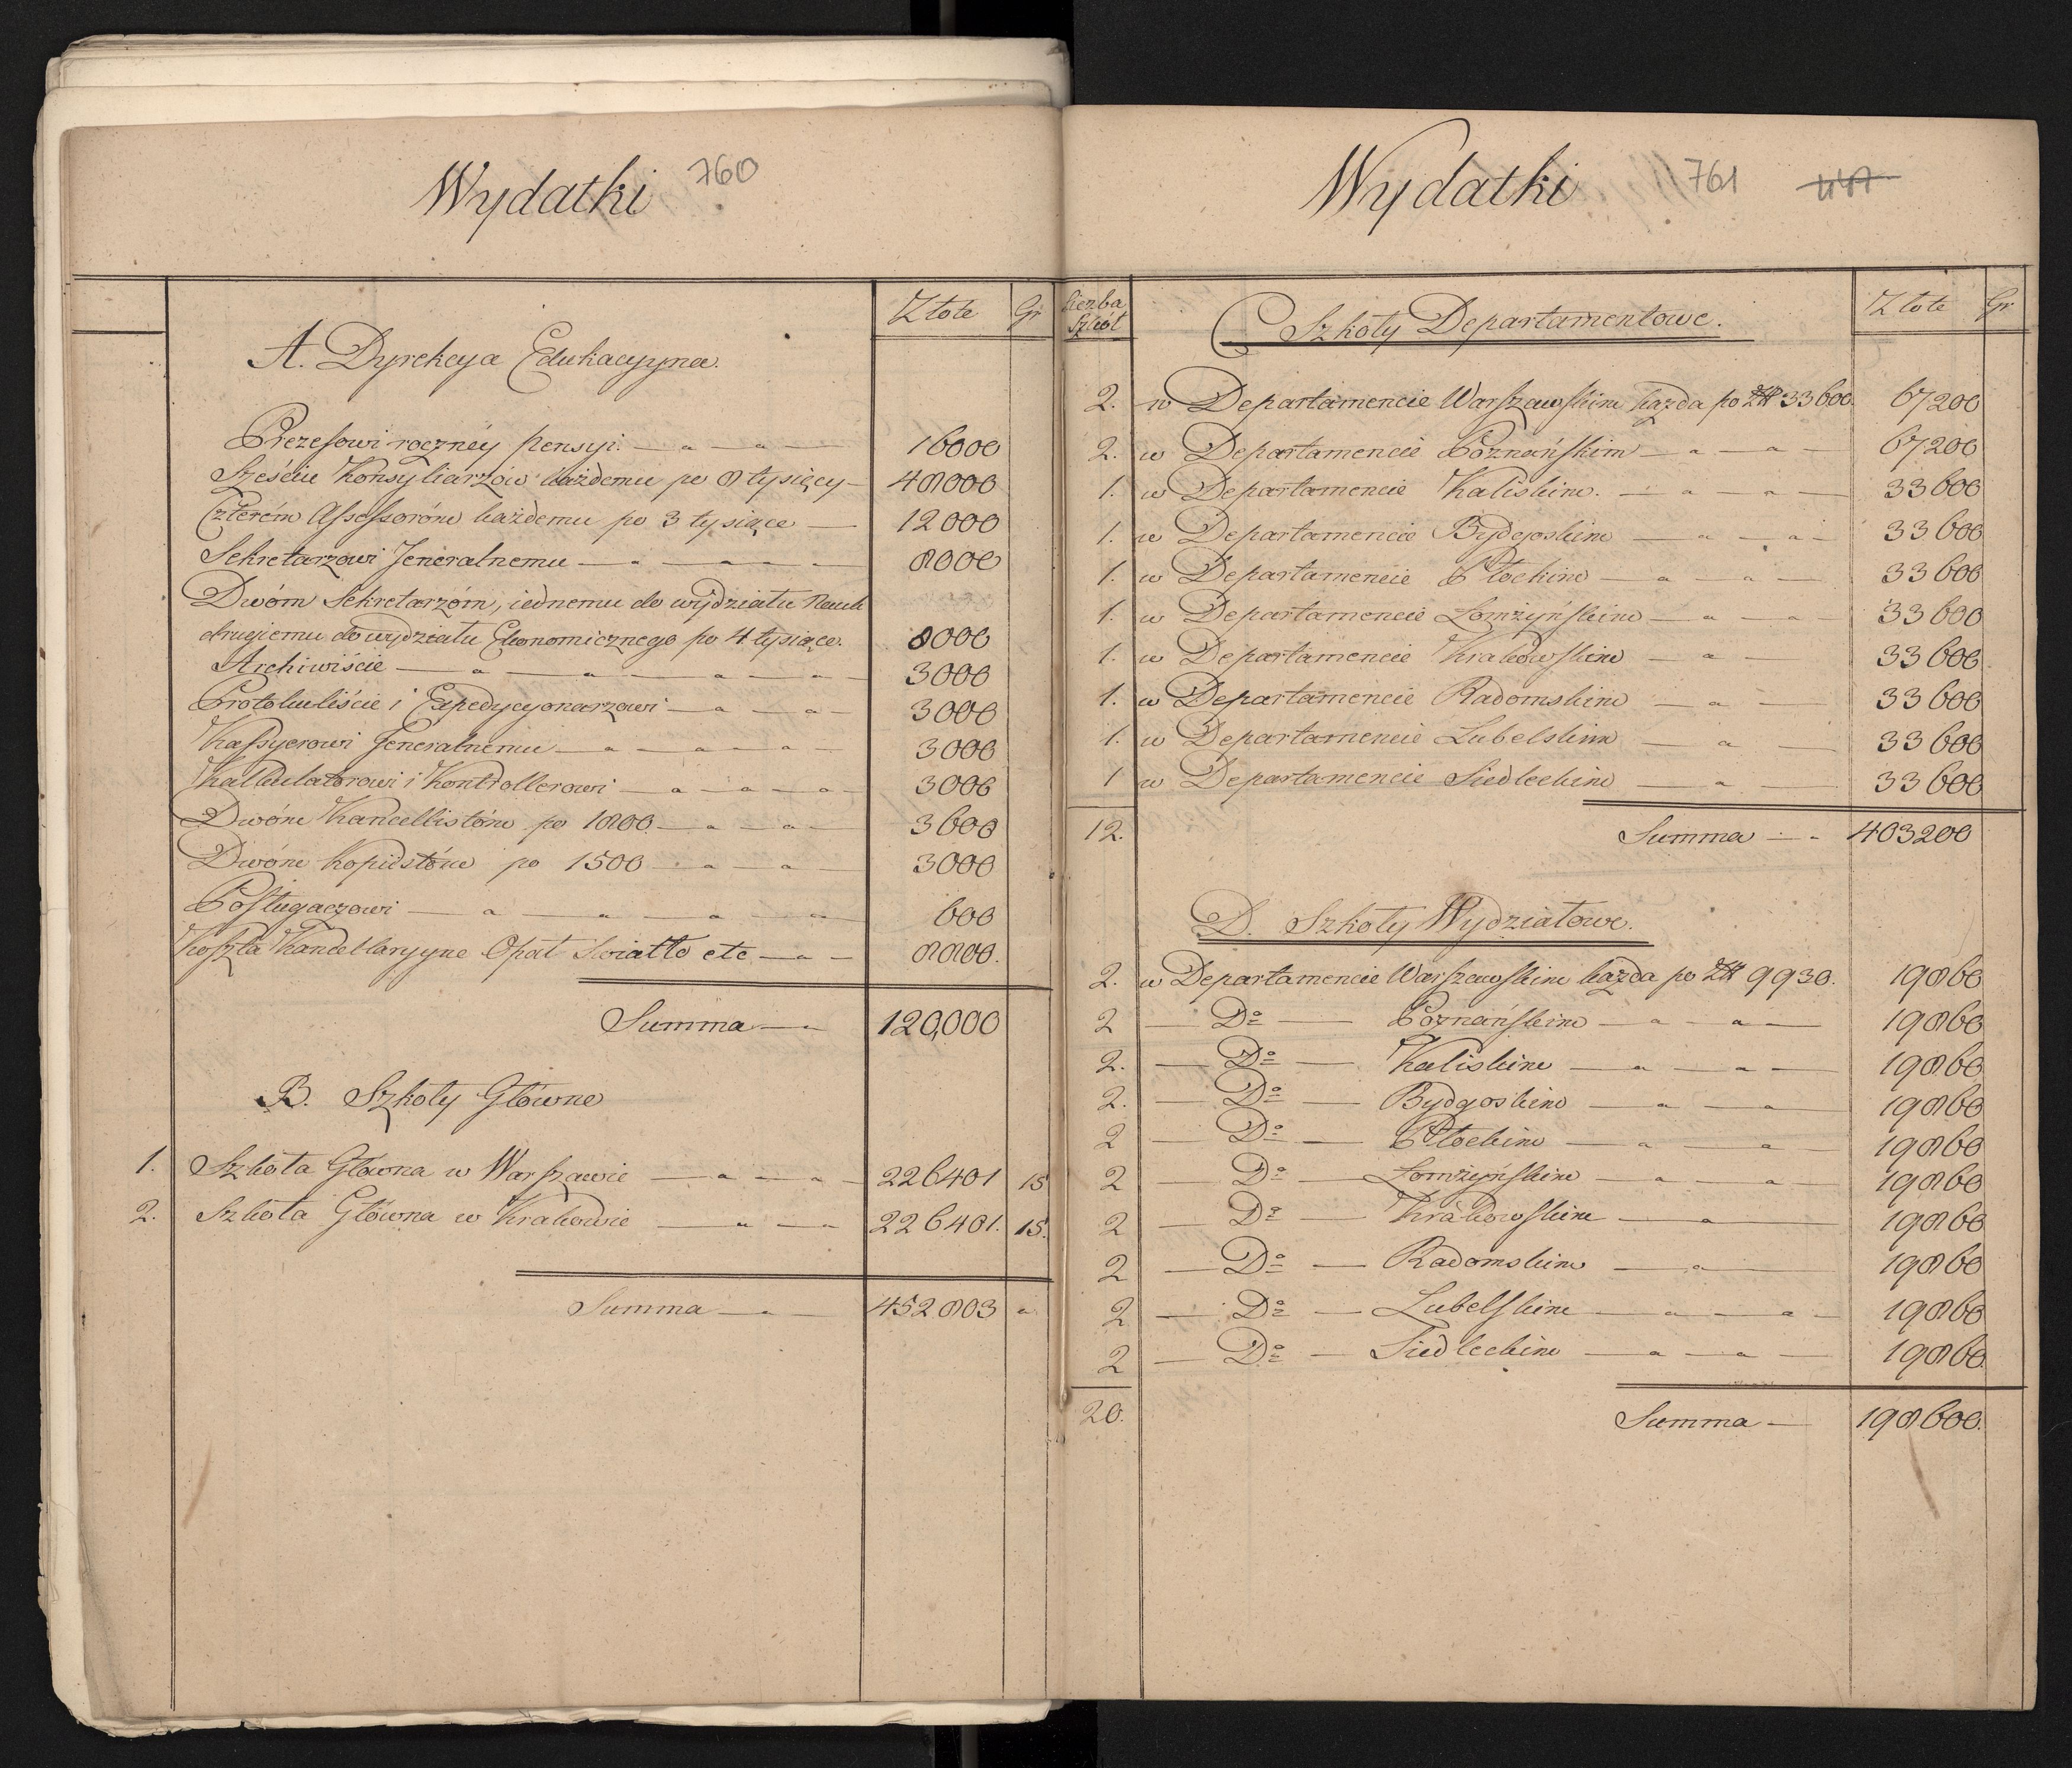 Wydatki 760
Złote Gr
A. Dyrekcya Edukacyyna.
Prezesowi roczney pensyi. — " — " — 16000
Sześciu Konsyliarzów każdemu po 8 tysięcy — 48000
Czterem Assessoróm każdemu po 3 tysiące — 12000
Sekretarzowi Jeneralnemu — " — " — 8000
Dwóm Sekretarzóm, iednemu do wydziału Nauk
drugiemu do wydziału Ekonomicznego po 4 tysiące. 8000
Archiwiście — " — " — " — " — 3000
Protokuliście i Expedycyonarzowi — " — " — 3000
Kassyerowi Jeneralnemu — " — " — " — 3000
Kalkulatorowi i Kontrollerowi — " — " — " — 3000
Dwóm Kancellistóm po 1800 — " — " — 3600
Dwóm Kopiistóm po 1500 — " — " — 3000
Posługaczowi — " — " — " — " — 600
Koszta Kancellaryyne Opał Swiatło etc — " — 8800.
Summa — " 120,000
B. Szkoły Główne
1. Szkoła Główna w Warszawie — " — " — 226401 15
2. Szkoła Główna w Krakowie — " — " 226401. 15.
Summa — " — 452803 "
Wydatki 761
Liczba Szkół
Złote Gr
C Szkoły Departamentowe.
2. w Departamencie Warszawskim każda po Złł 33600. 67200
2. w Departamencie Poznańskim — " — " — 67200
1. w Departamencie Kaliskim. — " — " — 33600
1. w Departamencie Bydgoskim — " — " — 33600
1. w Departamencie Płockim — " — " — 33600
1. w Departamencie Łomżyńskim — " — " — 33600
1. w Departamencie Krakowskim — " — 33600
1. w Departamencie Radomskim — " — 33600
1. w Departamencie Lubelskim — " — 33600
1 w Departamencie Siedleckim — " — 33600
12. Summa — " 403200
D. Szkoły Wydziałowe.
2. w Departamencie Warszawskim każda po Złł 9930. 19860
2 — Do — Poznańskim — " — " — 19860
2. — Do — Kaliskim — " — " — 19860
2. — Do — Bydgoskim — " — " 19860
2 — Do — Płockim — " — " 19860
2 — Do — Łomżyńskim — " — " — 19860
2 — Do — Krakowskim — " — 19860
2 — Do — Radomskim — " — 19860
2 — Do — Lubelskim — " — " — 19860
2 — Do — Siedleckim — " — " — 19860
20. Summa — 198600.